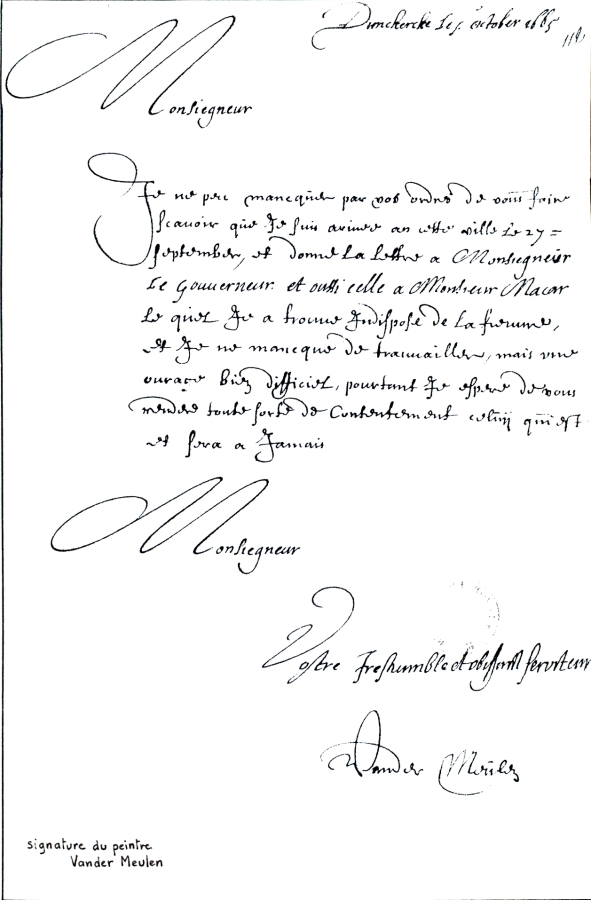 Dunckercke Le 5. october 1665
112
Monsiegneur
Je ne peu mancquer par vos ordres de vous faire
scavoir que Je suis arivee an cette ville Le 27=
september, et donne La Lettre a Monsiegneur
Le Gouverneur et aussi celle a Monsieur Macar
Le quel Je a trouve Indispose de La fievure,
et Je ne mancque de travailler, mais une
ouvrage bien difficiel, pourtant Je espere de vous
rendre toute sorte de Contentement celuij qui est
et sera a Jamais
Monsiegneur
Vostre Treshumble et obissant serviteur
Vander Meulen
signature du peintre
Vander Meulen